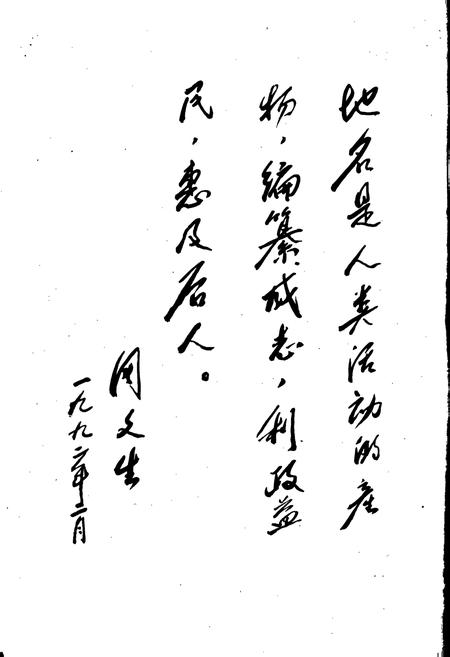 地名是人类活动的产
物，编纂成志，利政益
民，惠及后人。
周文生
一九九二年二月